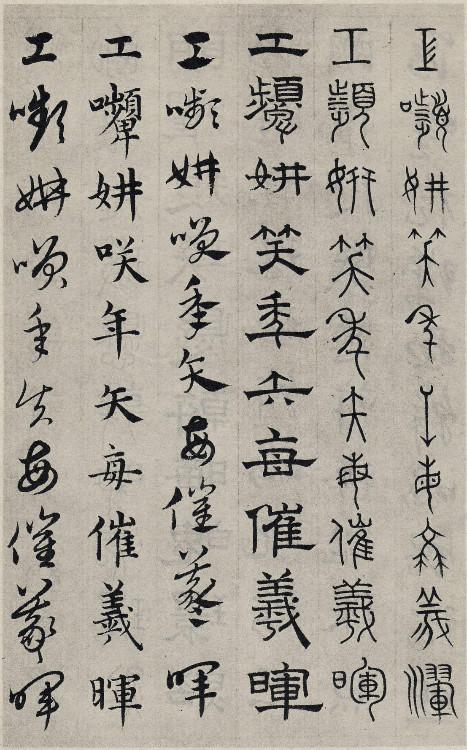 工嚬妍笑年矢每催羲暉
工顰妍笑年矢每催羲暉
工顰妍笑年矢每催羲暉
工嚬妍咲年矢每催羲暉
工顰妍咲年矢每催羲暉
工嚬妍咲年矢每催羲暉